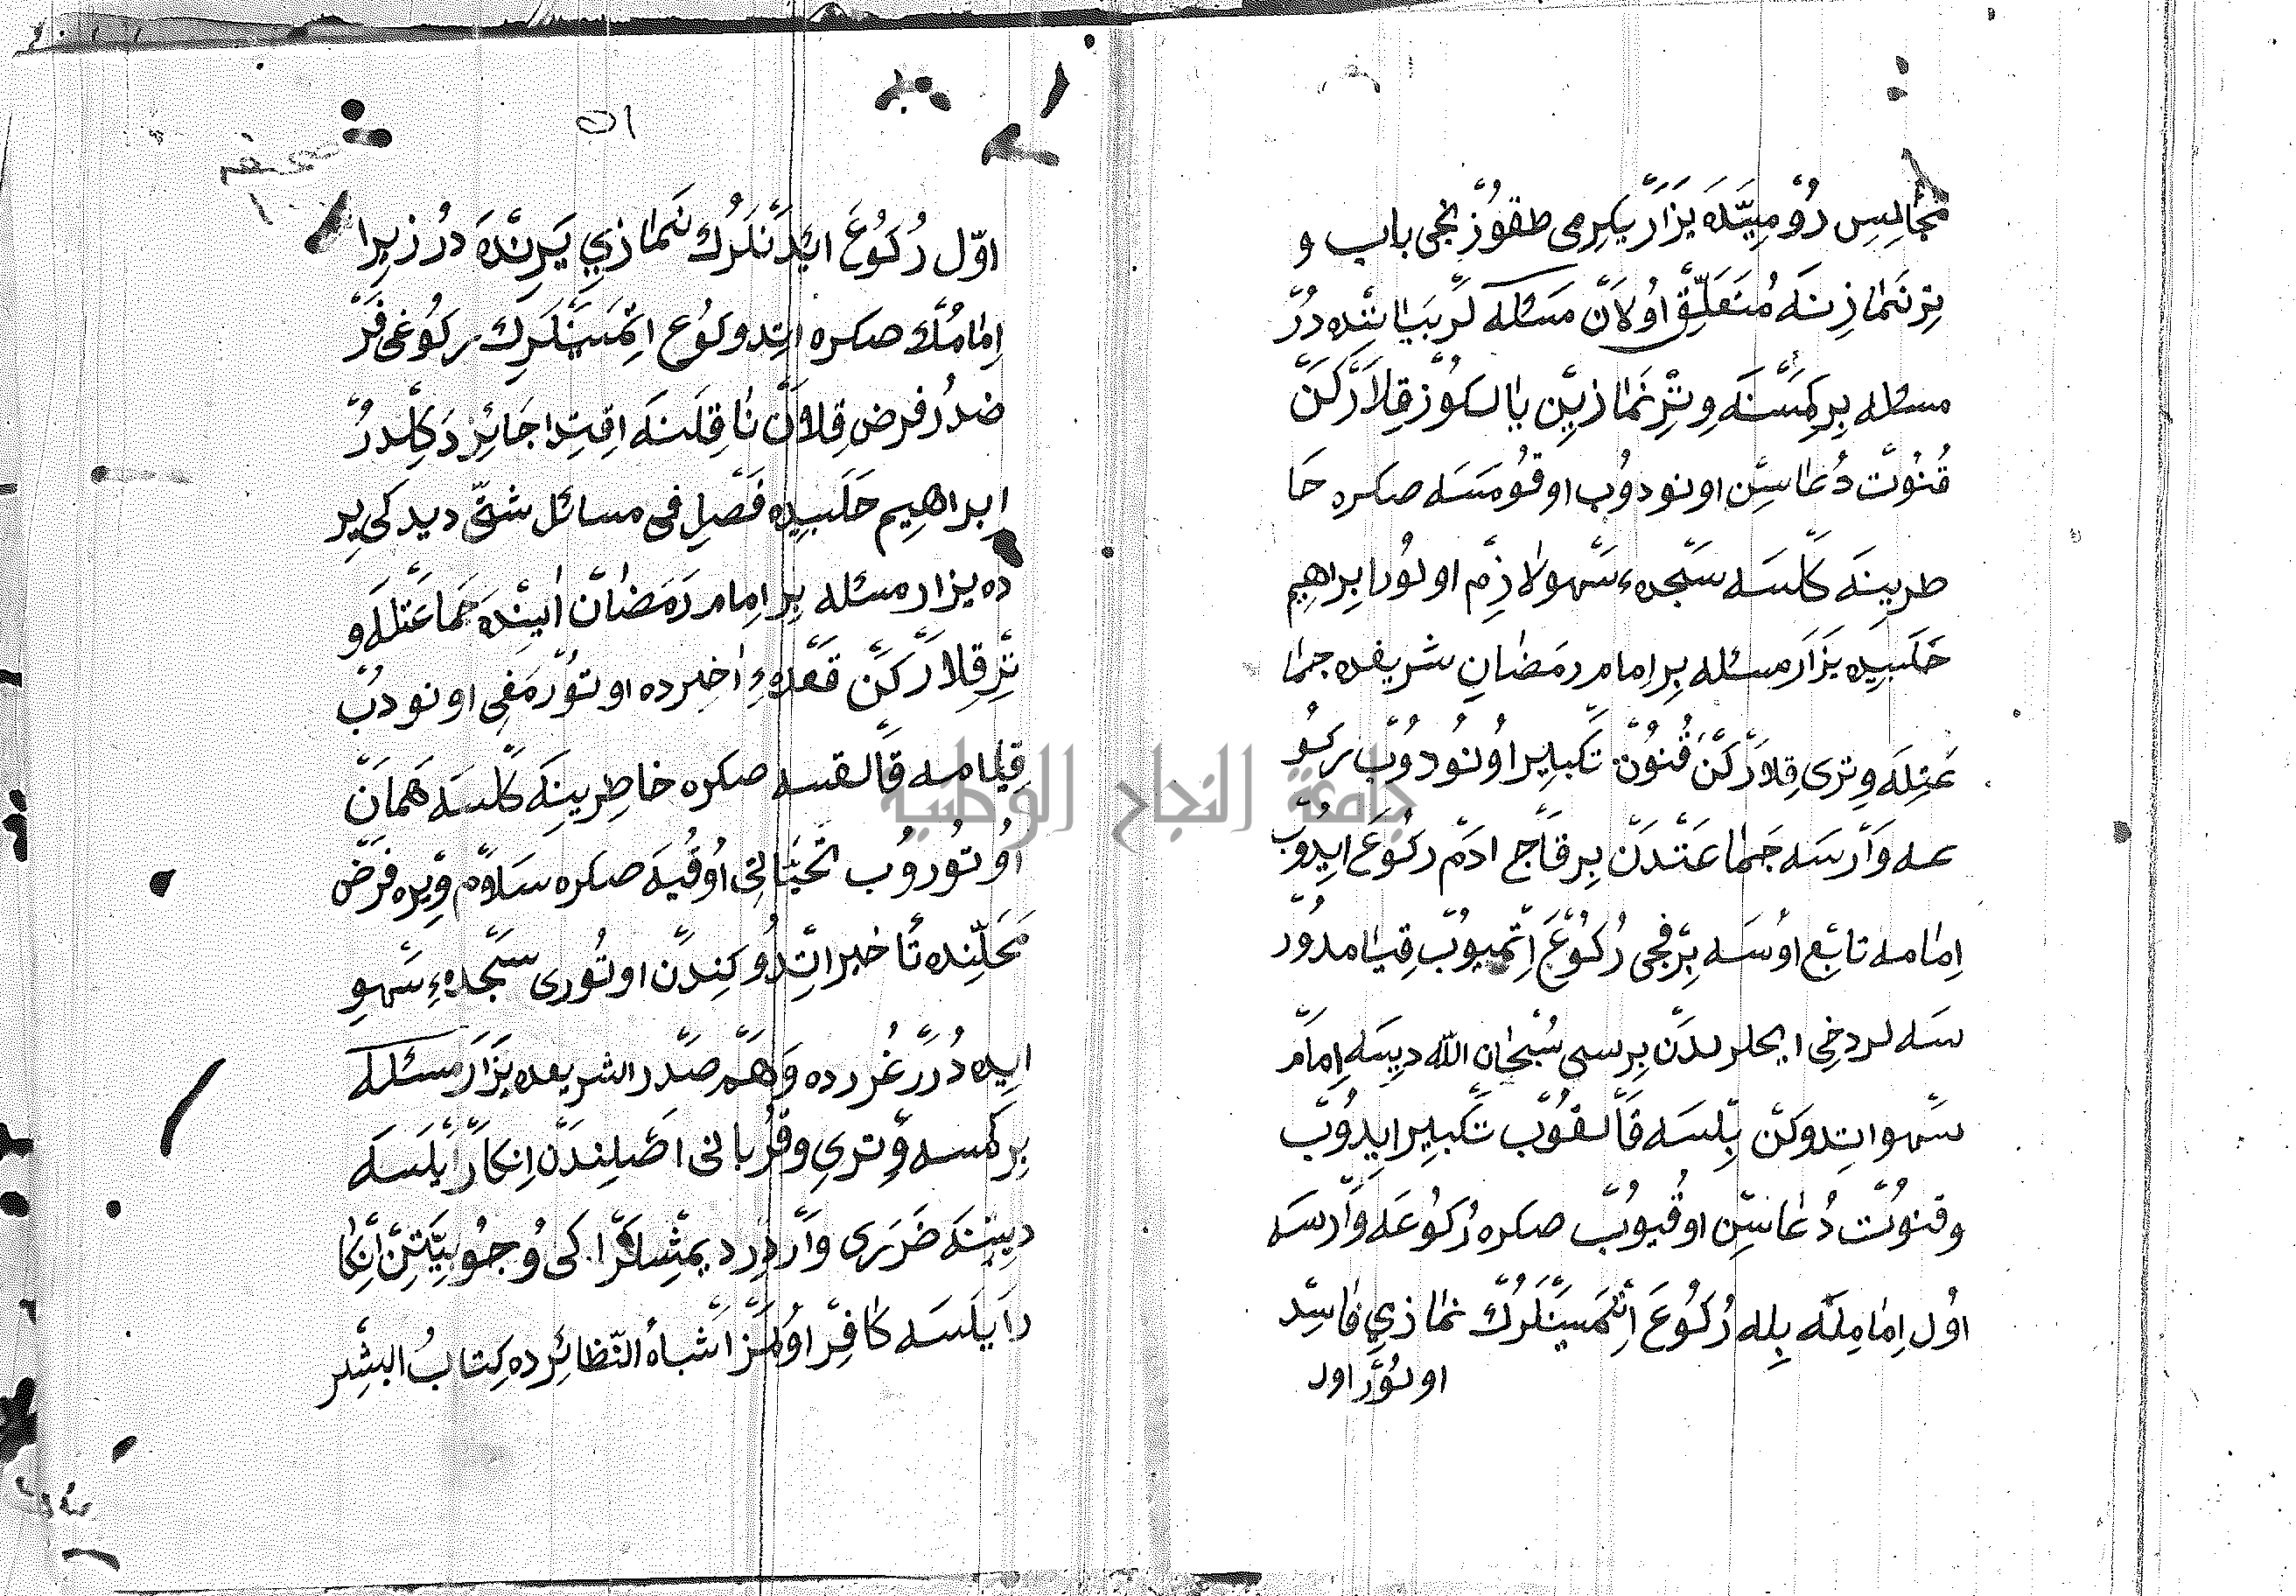 مجالس رومیده یزار یکرمی طقوزنجی باب و
تر نمازنه متعلق اولان مسئله لر بیاننده در
مسئله بر کمسنه وتر نمازین یالکوز قلارکن
قنوت دعاسین اونودوب اوقومسه صکره خا
طرینه کلسه سجدهء سهو لازم اولور ابراهیم
حلبیده یزار مسئله بر امام رمضان شریفده جما
عتله وتری قلارکن قنوت تکبیر اونودوب رکو
عه وارسه جماعتدن بر قاچ ادم رکوع ایدوب
امامه تابع اولسه برقجی رکوع اتمیوب قیامدور
سه لر دخی ایچلرندن برسی سبحان الله دیسه امام
سهو اتدوکن بلسه قالقوب تکبیر ایدوب
وقنوت دعاسین اوقیوب صکره رکوعه وارسه
اول امامله بله رکوع اتمسینلرک نمازی فاسد
اولور اول
جامعة النجاح الوطنية
٥١
صحيفه
اول رکوع ایدنلرک نمازی یرنده در زیرا
امامک صکره اتدوکوع اتمسینلرک رکوعی فر
ضدر فرض قلان نافلنه اقتدا جائز دکلدر
ابراهیم حلبیده فصل فی مسائل شتی دیدکی یر
ده یزار مسئله بر امام رمضان اینده جماعتله و
تر قلارکن قعدهء اخیرده اوتورمغی اونودب
قیامه قالقسه صکره خاطرینه کلسه همان
اوتوروب تحیاتی اوقیه صکره سلام ویره فرض
محلنده تاخیر اتدوکندن اوتوری سجدهء سهو
ایده درر غررده وهم صدر الشریعده یزار مسئله
بر کمسه وتری وقربانی اصلندن انکار ایلسه
دیننه ضرری واردر دیمشلر اکی وجوبیتن انکا
را یلسه کافر اولمز اشباه النظائرده کتاب البشر